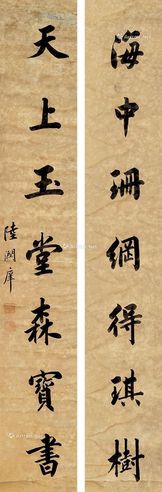 海中珊網得琪樹
天上玉堂森寶書
陸潤庠